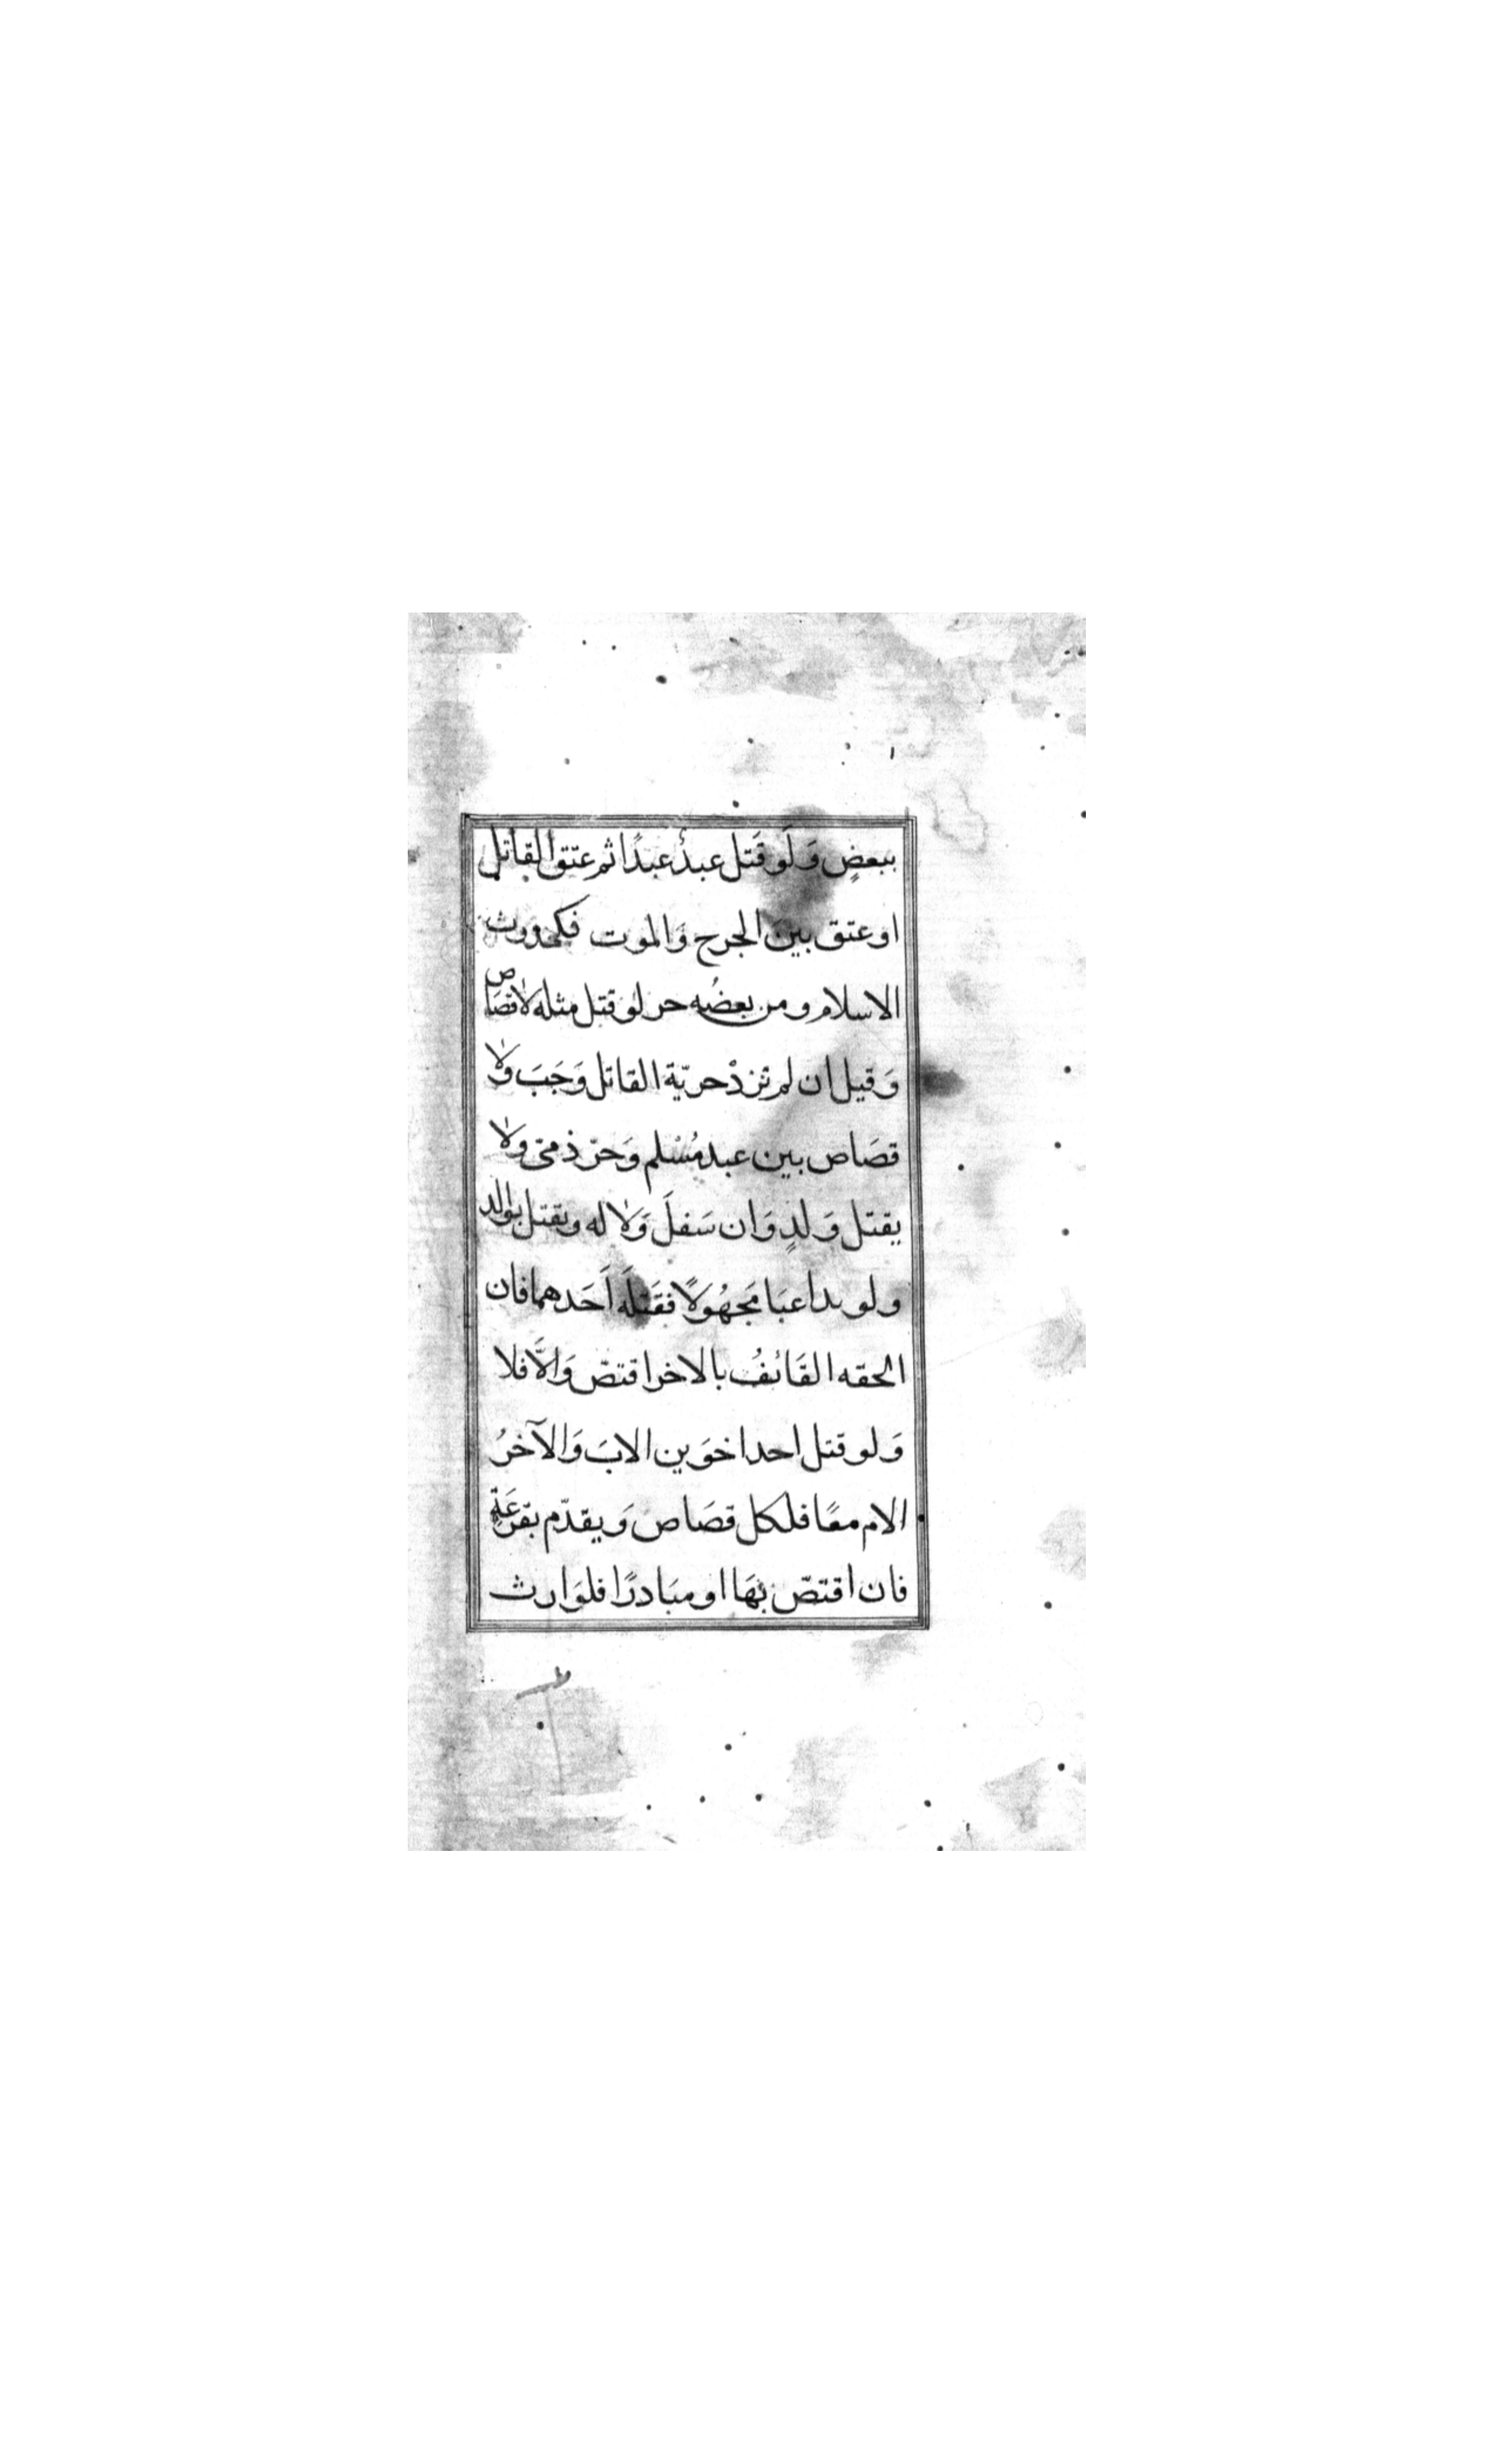 ببعضٍ وَلَو قَتل عبدٌ عبدًا ثم عتق القاتل
او عتق بينَ الجرح وَالموت فكحدوث
الاسلام ومن بعضُه حر لو قتل مثله لا قصَاص
وَقيل ان لم تزدْ حريّة القاتل وَجَبَ ولا
قصَاص بين عبد مُسْلم وَحرّ ذمّى ولا
يقتل وَلدٍ وَان سَفلَ وَلا له ويقتل بوالد
ولو تداعيَا مَجهُولًا فقَتلَه اَحَدهما فان
الحقه القَائفُ بالاخر اقتصّ وَالّا فلا
وَلو قتل احد اخوَين الابَ وَالآخرُ
الام معًا فلكل قصَاص وَيقدّم بقرعَةٍ
فان اقتصّ بهَا او مبَادرًا فلوَارث